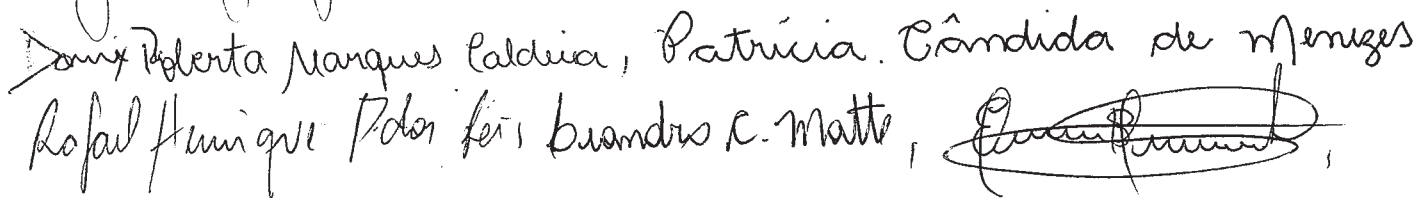 Roberta Marques Caldeia, Patrícia. Cândida de Menezes
Rafael Henrique P. dos Reis, Leandro C. Matte,